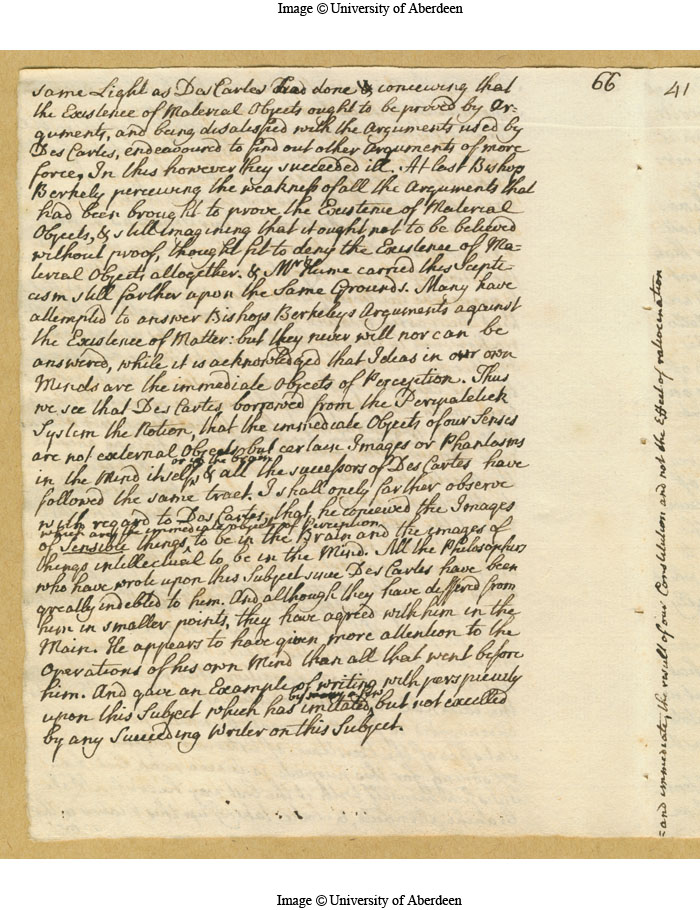 Image © University of Aberdeen
66
41
same Light as Des Cartes had done & conceiving that
the Existence of Material Objects ought to be proved by Ar-
guments, and being disatisfied with the Arguments used by
Des Cartes, endeavoured to find out other Arguments of more
force, In this however they succeeded ill. At last Bishop
Berkely perceiving the weakness of all the Arguments that
had been brought to prove the Existence of Material
Objects, & still imagining that it ought not to be believed
without proof, thought fit to deny the Existence of Ma-
terial Objects altogether. & Mr Hume carried this Scepti
cism still farther upon the Same Grounds. Many have
attempted to answer Bishops Berkeleys Arguments against
the Existence of Matter: but they never will nor can be
answered, while it is acknowledged that Ideas in our own
Minds are the immediate Objects of Perception. Thus
we see that Des Cartes borrowed from the Peripatetick
System the Notion, that the immediate Objects of our Senses
are not external Objects but certain Images or Phantasms
or in the Brain
in the Mind itself, & all the successors of Des Cartes have
followed the same tract. I shall onely farther observe
with regard to Des Cartes, that, he conceived the Images
which are the immediate objects of Perception
of Sensible things, to be in the Brain and the images of
things intellectual to be in the Mind. All the Philosophers
who have wrote upon this Subject since Des Cartes have been
greatly indebted to him. And although they have deffered from
him in smaller points, they have agreed with him in the
Main. He appears to have given more attention to the
Operations of his own Mind than all that went before
him. And gave an Example of writing with perspicuity
by many
upon this Subject which has imitated, but not excelled
by any Succeeding Writer on this Subject.
=and immediate, the result of our Constitution and not the Effect of ratiocination
Image © University of Aberdeen